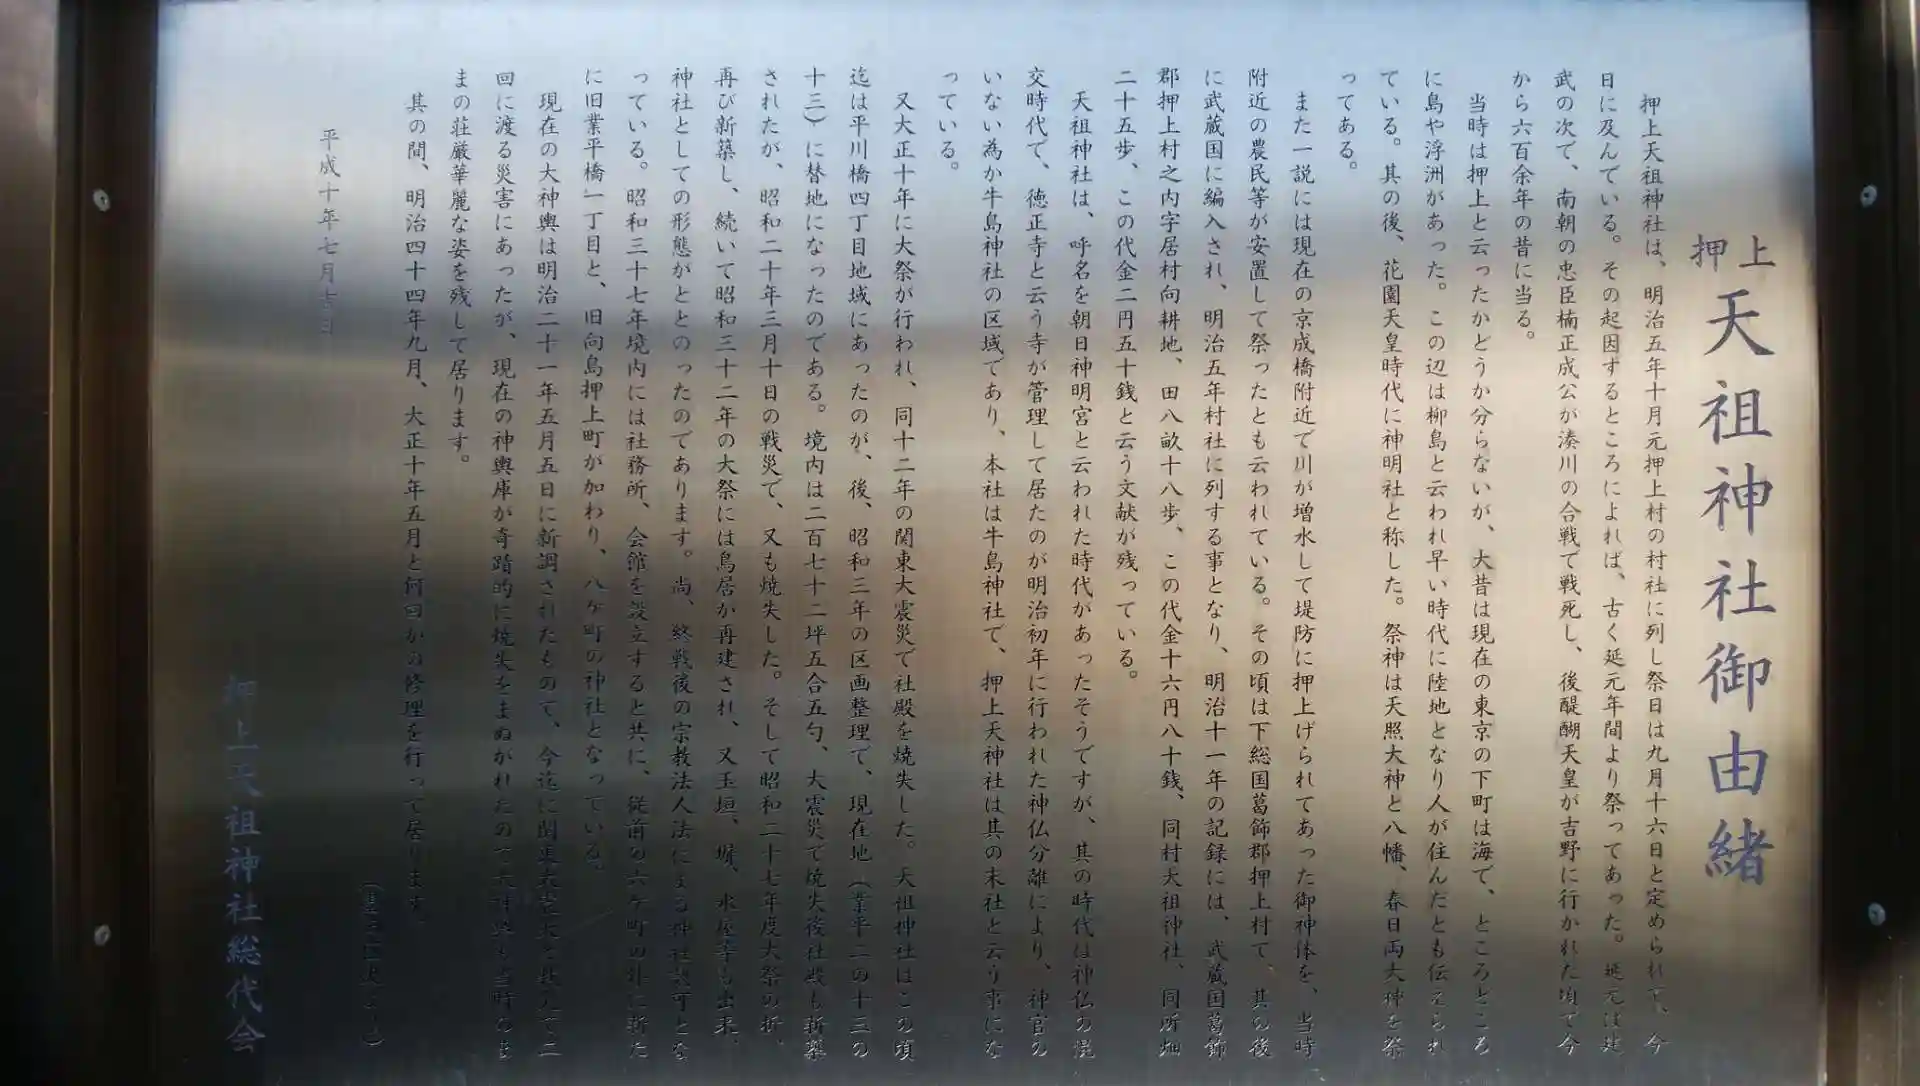 押上
天祖神社御由緒
押上天祖神社は、明治五年十月元押上村の村社に列し祭日は九月十六日と定められて、今
日に及んでいる。その起因するところによれば、古く延元年間より祭ってあった。延元は建
武の次で、南朝の忠臣楠正成公が湊川の合戦で戦死し、後醍醐天皇が吉野に行かれた頃で今
から六百余年の昔に当る。
当時は押上と云ったかどうか分らないが、大昔は現在の東京の下町は海で、ところどころ
に島や浮洲があった。この辺は柳島と云われ早い時代に陸地となり人が住んだとも伝えられ
ている。其の後、花園天皇時代に神明社と称した。祭神は天照大神と八幡、春日両大神を祭
ってある。
また一説には現在の京成橋附近で川が増水して堤防に押上げられてあった御神体を、当時
附近の農民等が安置して祭ったとも云われている。その頃は下総国葛飾郡押上村で、其の後
に武蔵国に編入され、明治五年村社に列する事となり、明治十一年の記録には、武蔵国葛飾
郡押上村之内字居村向耕地、田八畝十八歩、この代金十六円八十銭、同村天祖神社、同所畑
二十五歩、この代金二円五十銭と云う文献が残っている。
天祖神社は、呼名を朝日神明宮と云われた時代があったそうですが、其の時代は神仏の混
交時代で、徳正寺と云う寺が管理して居たのが明治初年に行われた神仏分離により、神官の
いない為か牛島神社の区域であり、本社は牛島神社で、押上天神社は其の末社と云う事にな
っている。
又大正十年に大祭が行われ、同十二年の関東大震災で社殿を焼失した。天祖神社はこの頃
迄は平川橋四丁目地域にあったのが、後、昭和三年の区画整理で、現在地(業平二の十三の
十三)に替地になったのである。境内は二百七十二坪五合五勺、大震災で焼失後社殿も新築
されたが、昭和二十年三月十日の戦災で、又も焼失した。そして昭和二十七年度大祭の折、
再び新築し、続いて昭和三十二年の大祭には鳥居が再建され、又玉垣、塀、水屋等も出来、
神社としての形態がととのったのであります。尚、終戦後の宗教法人法による神社認可とな
っている。昭和三十七年境内には社務所、会館を設立すると共に、従前の六ケ町の外に新た
に旧業平橋一丁目と、旧向島押上町が加わり、八ケ町の神社となっている。
現在の大神輿は明治二十一年五月五日に新調されたもので、今迄に関東大震災と戦災で二
回に渡る災害にあったが、現在の神輿庫が奇蹟的に焼失をまぬがれたので大神輿も当時のま
まの荘厳華麗な姿を残して居ります。
其の間、明治四十四年九月、大正十年五月と何回かの修理を行って居ります。
(墨田区史より)
平成十年七月吉日
押上天祖神社総代会